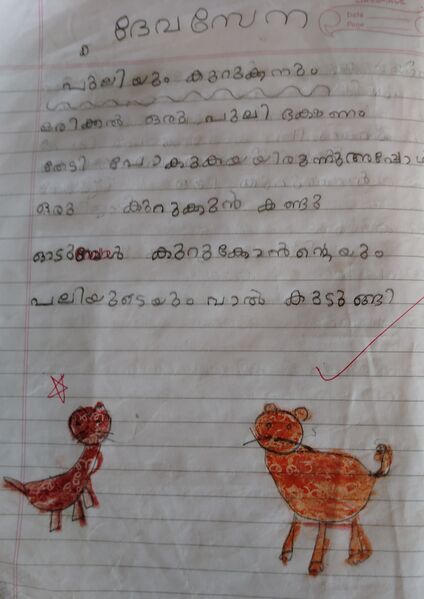 ദേവസേന
Date
Page
പുലിയും കുറുക്കനും
ഒരിക്കൽ ഒരു പുലി ഭക്ഷണം
തേടി പോകുകയയിരുന്നു അപ്പോ
ഒരു കുറുക്കൻ കണ്ടു
ഓടു കുറുക്കോൻൻ്റെയും
പലിയുടെയും വാൽ കുടുങ്ങി